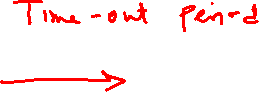 Time-out period